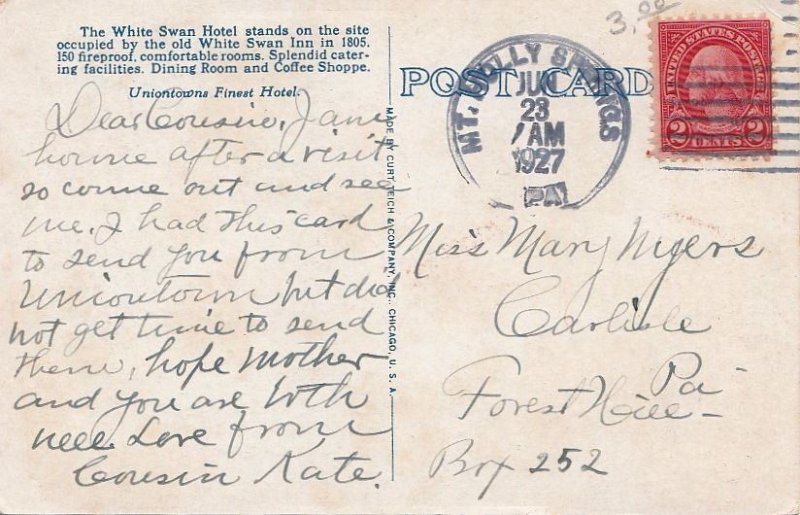 The White Swan Hotel stands on the site
occupied by the old White Swan Inn in 1805.
150 fireproof, comfortable rooms. Splendid cater-
ing facilities. Dining Room and Coffee Shoppe.
Uniontowns Finest Hotel.
Dear Cousin, I am
home after a visit
so come out and see
me. I had this card
to send you from
Uniontown but did
not get time to send
them, hope Mother
and you are both
well. Love from
Cousin Kate.
MADE BY CURT TEICH & COMPANY, INC., CHICAGO, U. S. A.
POST CARD
MT. HOLLY SPRINGS
23
AM
1927
PA
3.00
UNITED STATES POSTAGE
2 CENTS 2
Miss Mary Myers
Carlisle
Pa-
Forest Hill-
Box 252